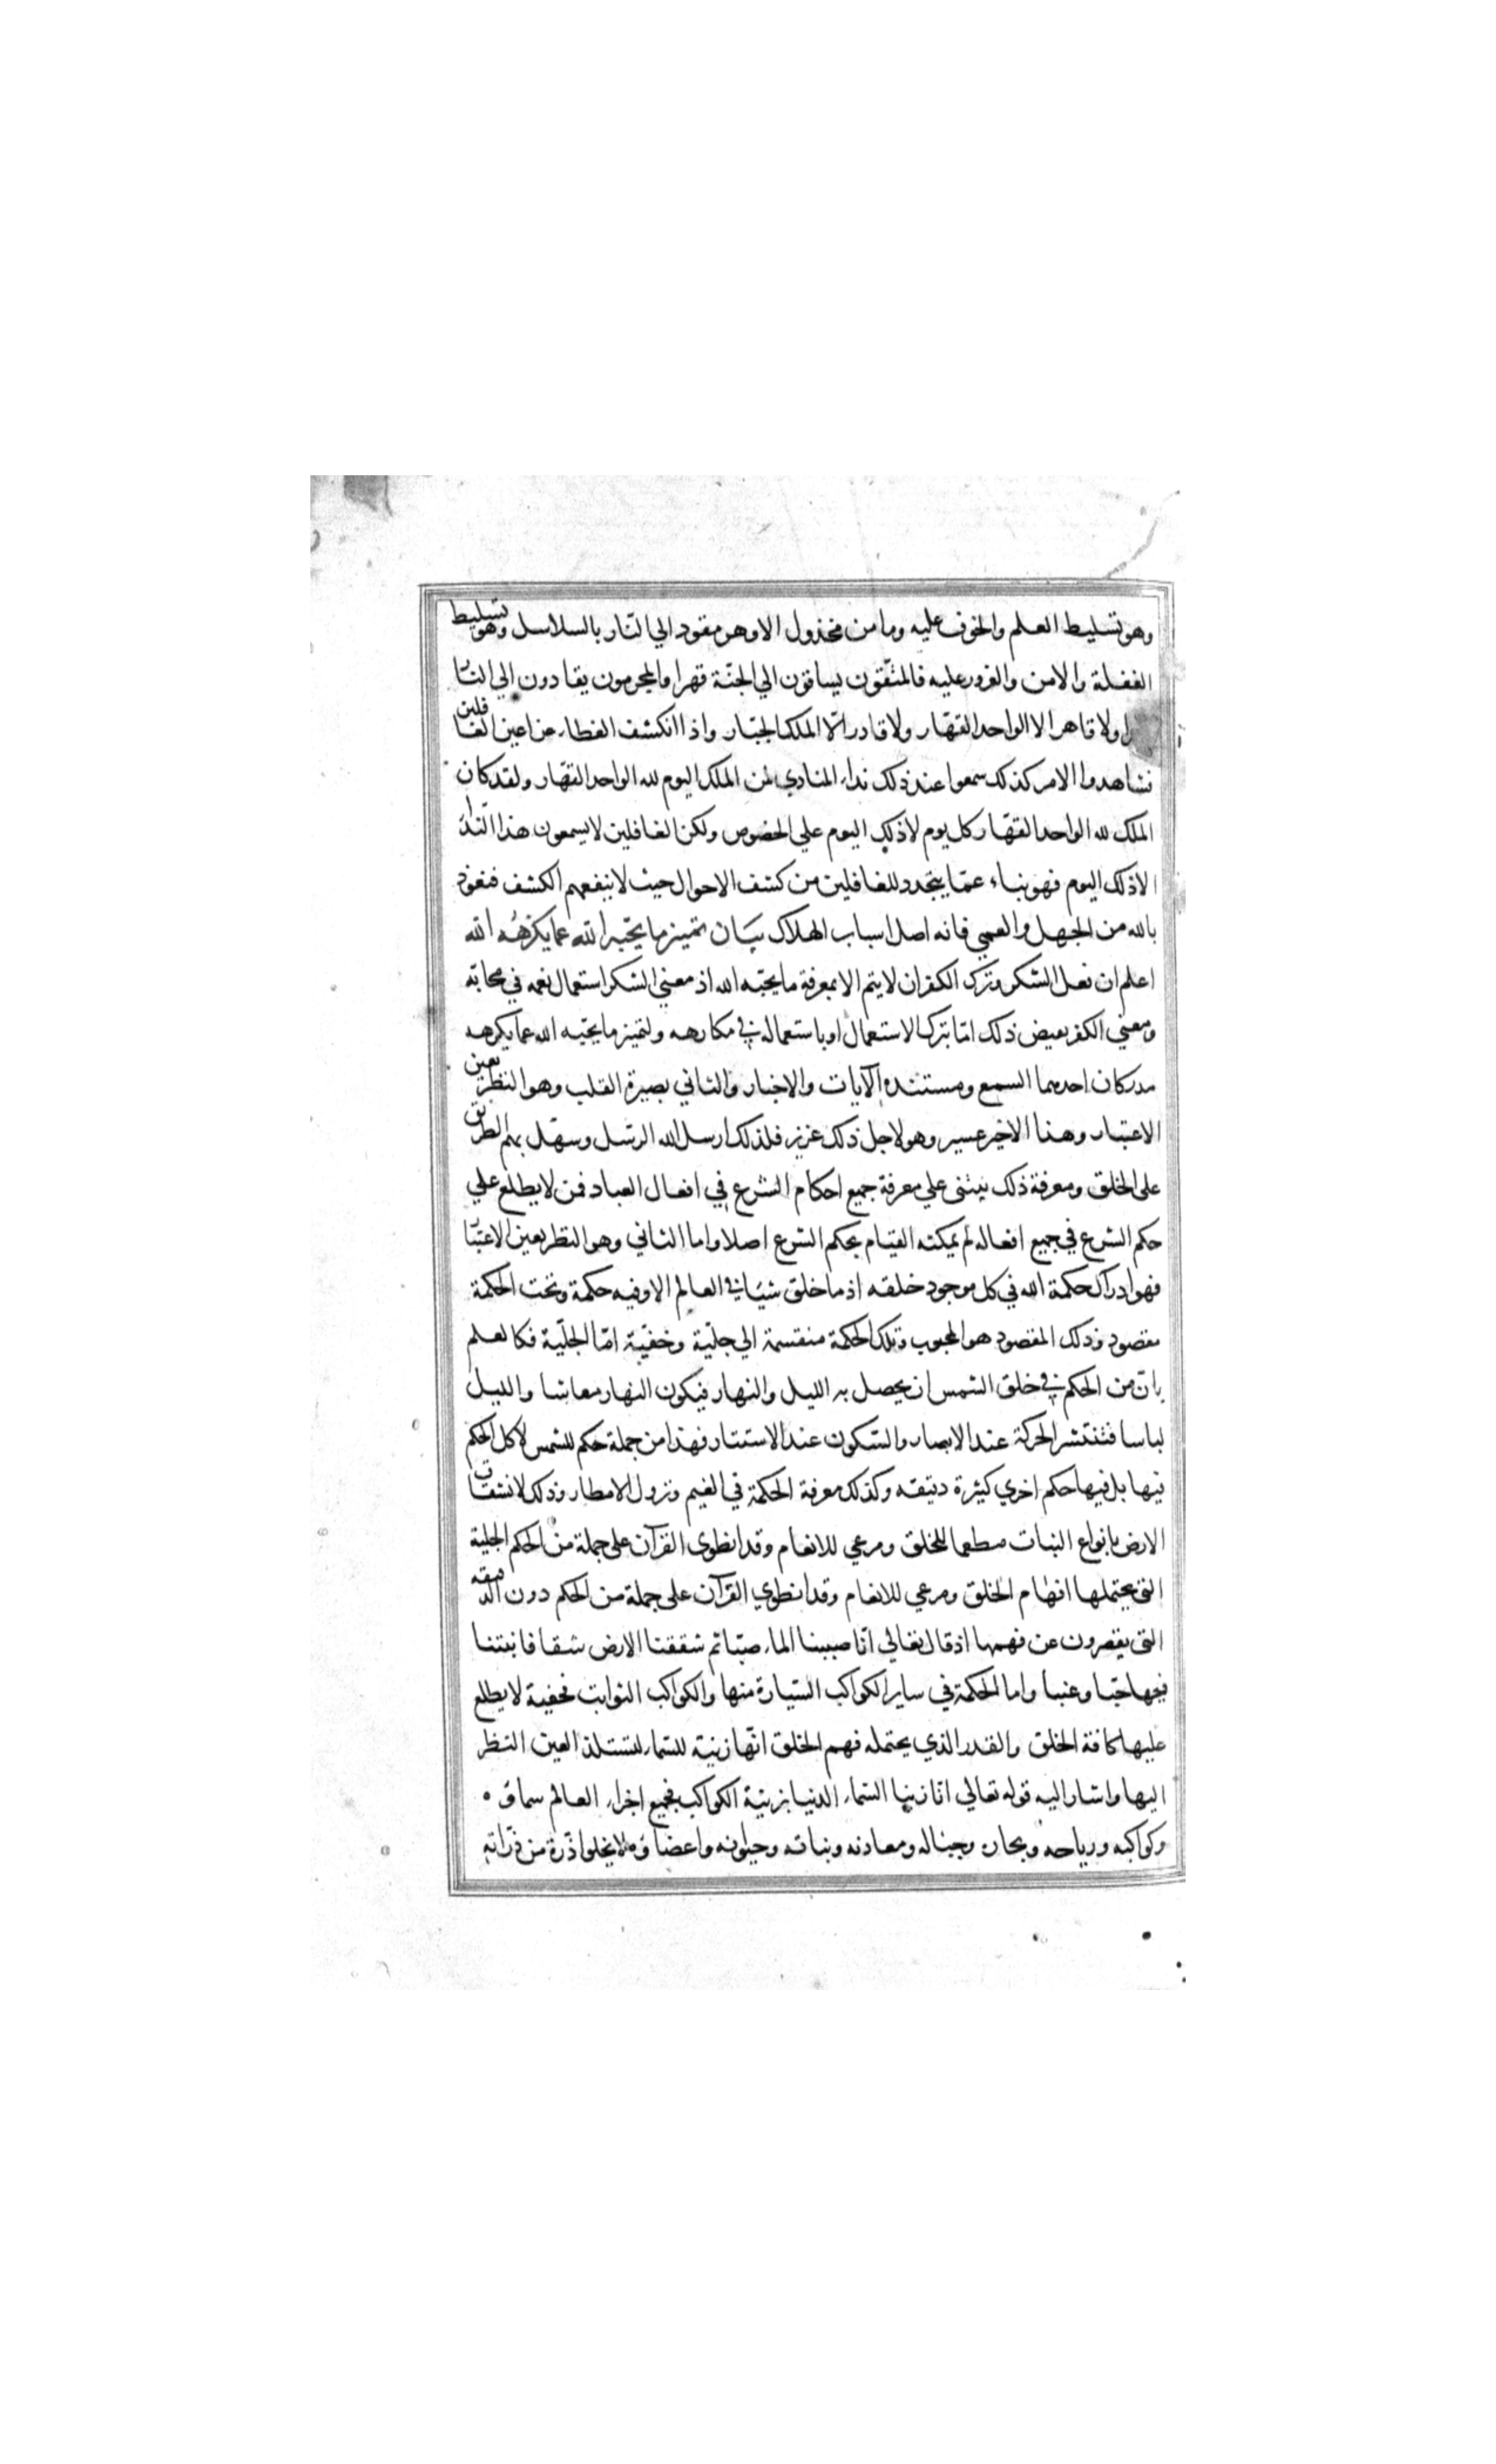 وهو تسليط العلم والخوف عليه وما من مخذول الا وهو مقود الي النار بالسلاسل وهو تسليط
الغفلة والامن والغرور عليه فالمتقون يساقون الي الجنة قهرا والمجرمون يقادون الي النار
ولا قاهر الا الواحد القهار ولا قادر الا الملك الجبار واذا انكشف الغطاء عن اعين الغافلين
فشاهدوا الامر كذلك سمعوا عند ذلك نداء المنادي لمن الملك اليوم لله الواحد القهار ولقد كان
الملك لله الواحد القهار كل يوم لا ذلك اليوم علي الخصوص ولكن الغافلين لا يسمعون هذا النداء
الا ذلك اليوم فهو نباء عما يتجدد للغافلين من كشف الاحوال حيث لا ينفعهم الكشف فنعوذ
بالله من الجهل والعمي فانه اصل اسباب الهلاك بيان تميز ما يحبه الله عما يكرهه الله
اعلم ان فعل الشكر وترك الكفران لا يتم الا بمعرفة ما يحبه الله اذ معني الشكر استعمال نعمه في محابه
ومعني الكفر نقيض ذلك اما بترك الاستعمال او باستعماله في مكارهه ولتميز ما يحبه الله عما يكرهه
مدركان احدهما السمع ومستنده الآيات والاخبار والثاني بصيرة القلب وهو النظر بعين
الاعتبار وهذا الاخير عسير وهو لاجل ذلك عزيز فلذلك ارسل الله الرسل وسهل بهم الطريق
على الخلق ومعرفة ذلك يبتنى علي معرفة جميع احكام الشرع في افعال العباد فمن لا يطلع علي
حكم الشرع في جميع افعاله لم يمكنه القيام بحكم الشرع اصلا واما الثاني وهو النظر بعين الاعتبار
فهو ادراك حكمة الله في كل موجود خلقه اذ ما خلق شيئا في العالم الا وفيه حكمة وتحت الحكمة
مقصود وذلك المقصود هو المحبوب وتلك الحكمة منقسمة الي جلية وخفية اما الجلية فكالعلم
بان من الحكم في خلق الشمس ان يحصل به الليل والنهار فيكون النهار معاشا والليل
لباسا فتنتشر الحركة عند الابصار والسكون عند الاستتار فهذا من جملة حكم للشمس لا كل الحكم
فيها بل فيها حكم اخري كثيرة دقيقه وكذلك معرفة الحكمة في الغيم ونزول الامطار وذلك لانشقاق
الارض بانواع النبات مطعما للخلق ومرعي للانعام وقد انطوى القرآن على جملة من الحكم الجلية
التي يحتملها افهام الخلق ومرعي للانعام وقد انطوي القرآن على جملة من الحكم دون الدقيقه
التي يقصرون عن فهمها اذ قال تعالي انا صببنا الماء صبا ثم شققنا الارض شقا فانبتنا
فيها حبا وعنبا واما الحكمة في ساير الكواكب السيارة منها والكواكب الثوابت فخفية لا يطلع
عليها كافة الخلق والقدر الذي يحتمله فهم الخلق انها زينة للسماء لتستلذ العين النظر
اليها واشار اليه قوله تعالي انا زينا السماء الدنيا بزينة الكواكب فجميع اجزاء العالم سماؤه
وكواكبه ورياحه وبحاره وجباله ومعادنه ونباته وحيوانه واعضاؤه لا يخلوا ذرة من ذراته